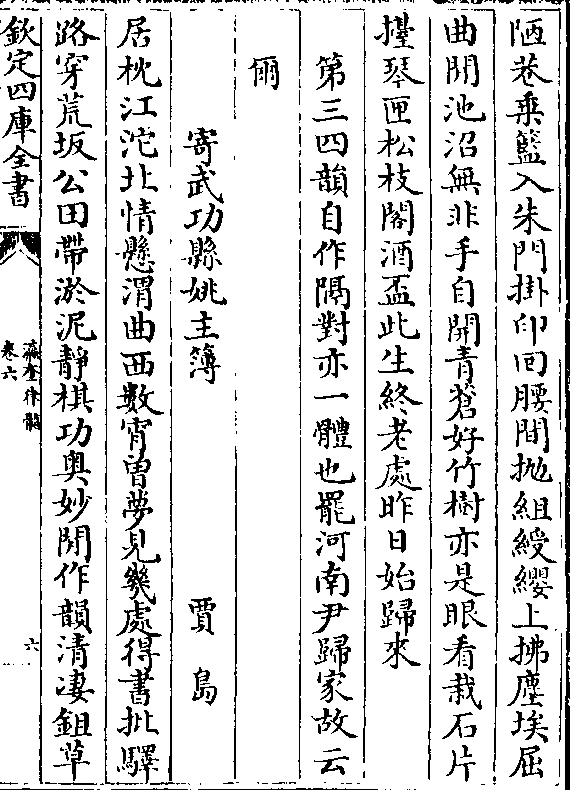 陋巷乗籃入朱門掛印回腰間抛組綬纓上拂塵埃屈
曲閒池沼無非手自開青蒼好竹樹亦是眼看栽石片
擡琴匣松枝閣酒盃此生終老處昨日始歸來
第三四韻自作隔對亦一體也罷河南尹歸家故云
爾
寄武功縣姚主簿 賈島
居枕江沱北情懸渭曲西數宵曽夢見幾處得書批驛
路穿荒坂公田帶淤泥靜棋功奥妙閒作韻清凄鉏草
欽定四庫全書
瀛奎律髓
卷六
六